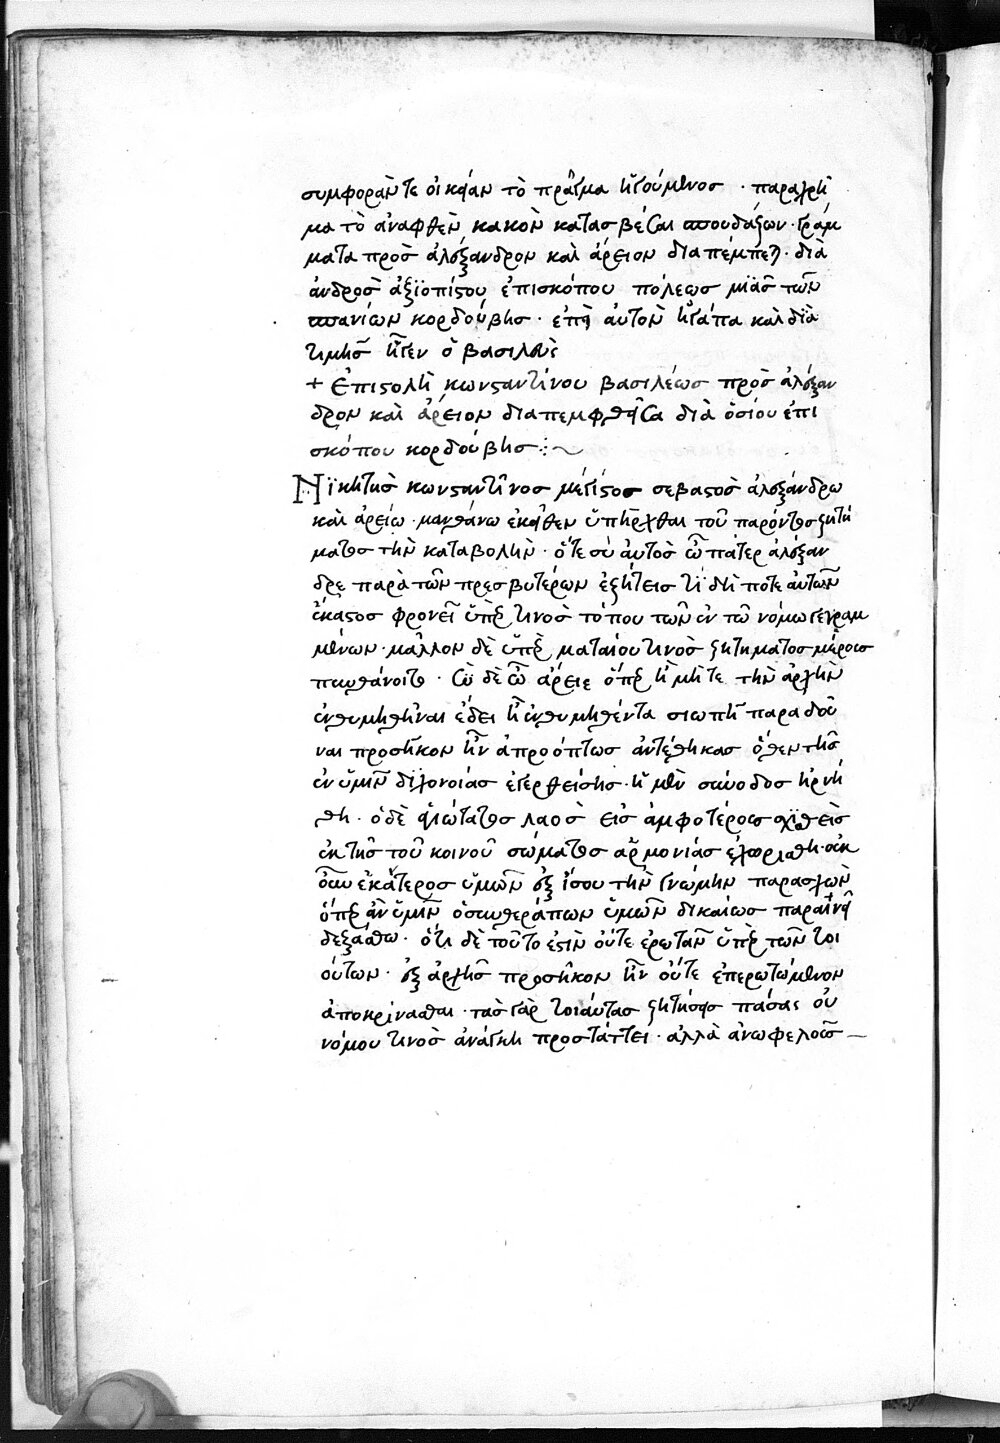 συμφορὰν τε οἰκείαν τὸ πρᾶγμα ἡγούμενος · παραχρῆ
μα τὸ ἀναφθὲν κακὸν κατασβέσαι σπουδάζων · γράμ
ματα πρὸς ἀλέξανδρον καὶ ἄρειον διαπέμπει · διὰ
ἀνδρὸς ἀξϊοπίστου ἐπισκόπου πόλεως μϊᾶς τῶν
σπανίων κορδούβης · ἐπεὶ αὐτὸν ἠγάπα καὶ διὰ
τιμῆς ἦγεν ὁ βασιλεὺς
+ Ἐπιστολὴ κωνσταντίνου βασιλέως πρὸς ἀλέξαν
δρον καὶ ἄρειον διαπεμφθεῖσα διὰ ὁσίου ἐπι
σκόπου κορδούβης :~
Νϊκητὴς κωνσταντῖνος μέγιστος σεβαστὸς ἀλεξάνδρω
καὶ ἀρείω · μανθάνω ἐκεῖθεν ὑπῆρχθαι τοῦ παρόντος ζητή
ματος τὴν καταβολὴν · ὅτε σὺ αὐτὸς ὦ πάτερ ἀλέξαν
δρε παρὰ τῶν πρεσβυτέρων ἐξήτεις τί δή ποτε αὐτῶν
ἕκαστος φρονεῖ ὑπὲρ τινὸς τόπου τῶν ἐν τῶ νόμω γεγραμ
μένων · μᾶλλον δὲ ὑπὲρ ματαίου τινὸς ζητήματος μέρους
πυνθάνοιτο · Σὺ δὲ ὦ ἄρειε ὅπερ ἢ μήτε τὴν ἀρχὴν
ἐνθυμηθῆναι ἔδει ἢ ἐνθυμηθέντα σιωπῆ παραδοῦ
ναι προσῆκον ἦν ἀπροόπτως ἀντέθηκας ὅθεν τῆς
ἐν ὑμῖν διχονοίας ἐγερθείσης · ἡ μὲν σύνοδος ἠρνή
θη · ὁ δὲ ἁγιώτατος λαὸς εἰς ἀμφοτέρους σχϊσθεὶς
ἐκ τῆς τοῦ κοινοῦ σώματος ἁρμονίας ἐχωρίσθη · οὐκ
οῦν ἑκάτερος ὑμῶν ἐξ ἴσου τὴν γνώμην παρασχὼν
ὅπερ ἂν ὑμῖν ὁ συνθεράπων ὑμῶν δικαίως παραινεῖ
δεξάσθω · ὅτι δὲ τοῦτο ἐστὶν οὔτε ἐρωτᾶν ὑπὲρ τῶν τοι
ούτων · ἐξ ἀρχῆς προσῆκον ἦν οὔτε ἐπερωτώμενον
ἀποκρίνασθαι · τὰς γὰρ τοιαύτας ζητήσεις πάσας οὐ
νόμου τινὸς ἀνάγκη προστάττει · ἀλλὰ ἀνωφελοῦς —